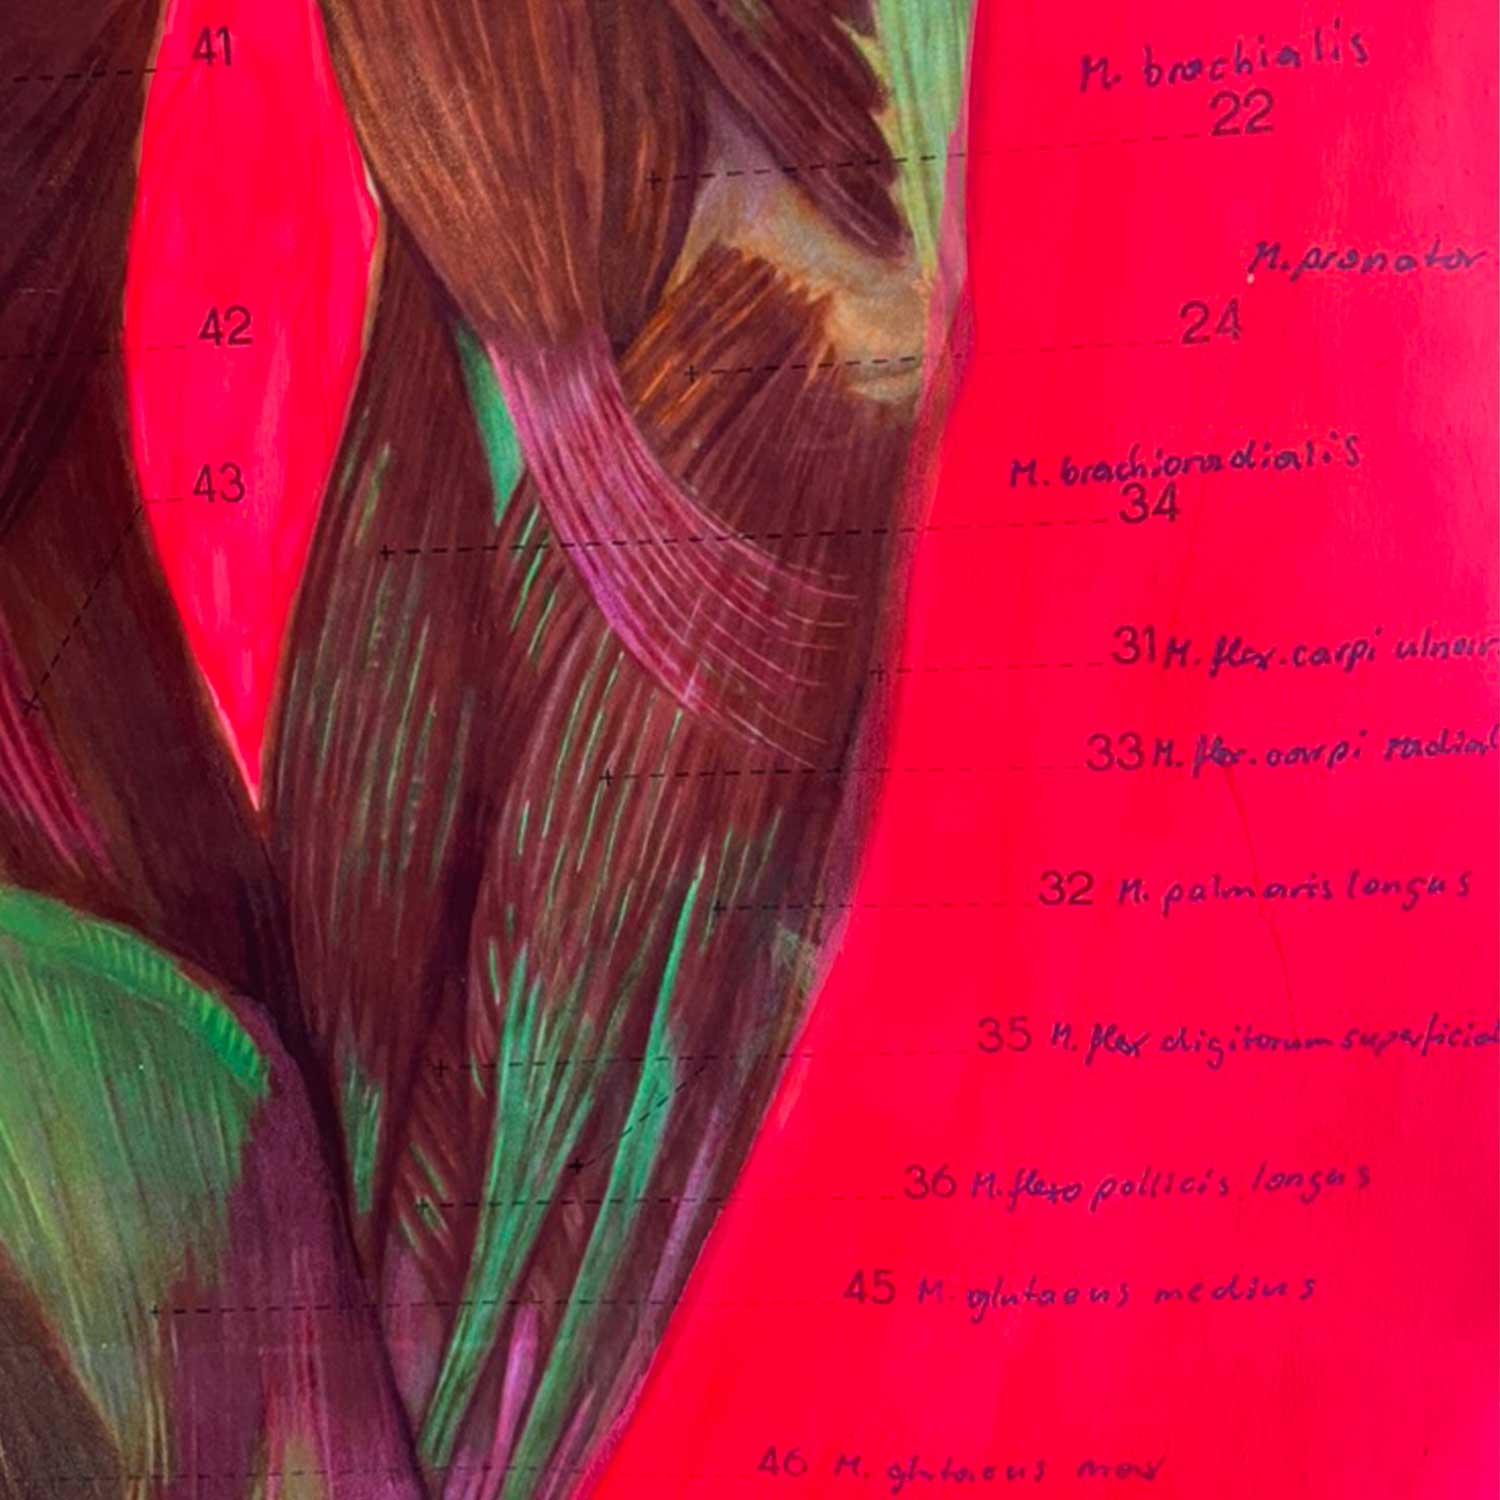 41
M. brachialis
22
M. pronator
42
24
M. brachioradialis
43
34
31 M. flex. carpi ulnar
33 M. flex. carpi radial
32 M. palmaris longus
35 M. flex digitorum superficial
36 M. flexo pollicis longus
45 M. glutaeus medius
46 M. glutaeus max